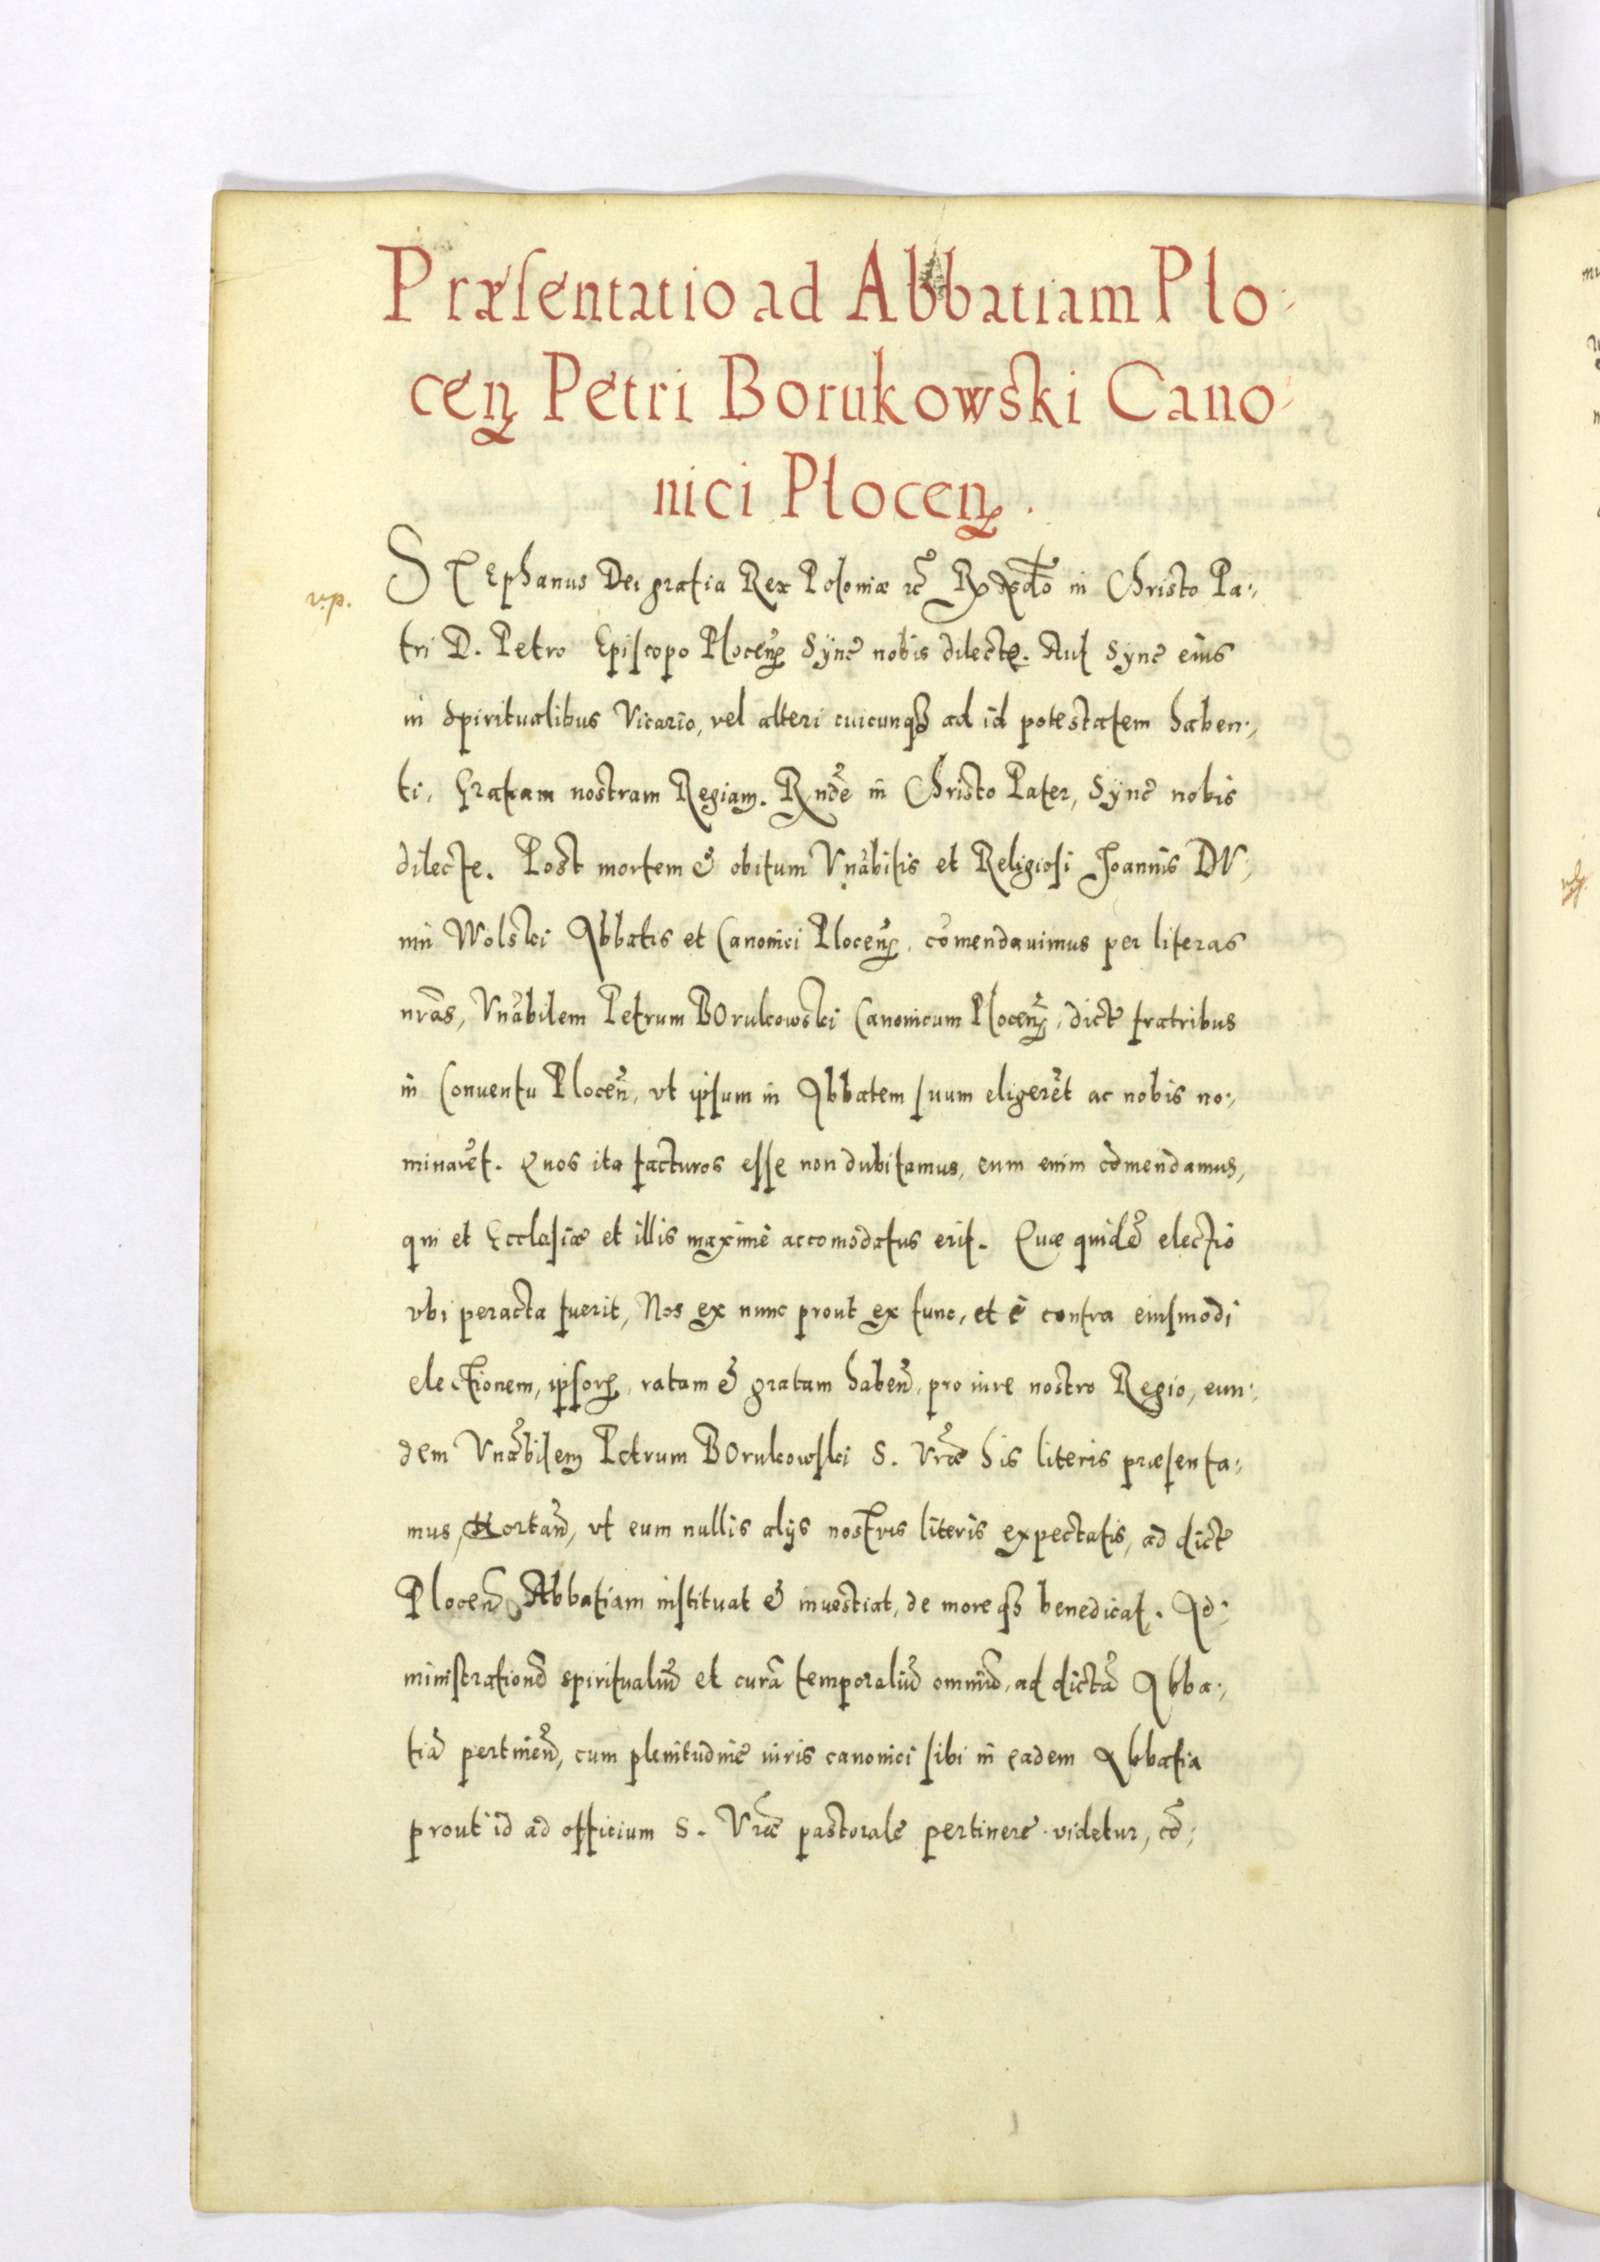 Præsentatio ad Abbatiam Plo-
cen Petri Borukowski Cano-
nici Plocen.
v.p.
STEphanus Dei gratia Rex Poloniæ in Christo Pa-
tri D. Petro Episcopo Plocen̄ Synē nobis dilectē. Aut Synē eius
in spiritualibus Vicario, vel alteri cuicunqȝ ad id potestatem haben-
ti, Gratiam nostram Regiam. Rndē in Christo Pater, Synē nobis
dilecte. Post mortem & obitum Vnābilis et Religiosi Joannis DV-
nin Wolski Abbatis et Canonici Plocen̄, cōmendauimus per literas
nrās, Vnābilem Petrum BOrukowski Canonicum Plocen̄, dictē fratribus
in Conuentu Plocen̄, vt ipsum in Abbatem suum eligerēt ac nobis no-
minarēt. Quos ita facturos esse non dubitamus, eum enim cōmendamus,
qui et Ecclesiæ et illis maximè accomodatus erit. Quæ quidē electio
vbi peracta fuerit, Nos ex nunc prout ex tunc, et è contra eiusmodi
electionem, ipsorꝝ, ratam & gratam haben̄, pro iure nostro Regio, eun-
dem Vnābilem Petrum BOrukowski S. Vræ his literis præsenta-
mus, Hortan̄, vt eum nullis alijs nostris literis expectatis, ad dictē
Plocen̄ Abbatiam instituat & inuestiat, de moreqȝ benedicat. Ad-
ministrationē spiritualiū et curā temporaliū omniū, ad dictā Abba-
tiā pertinen̄, cum plenitudine iuris canonici sibi in eadem Abbatia
prout id ad officium S. Vræ pastorale pertinere videtur, cō-